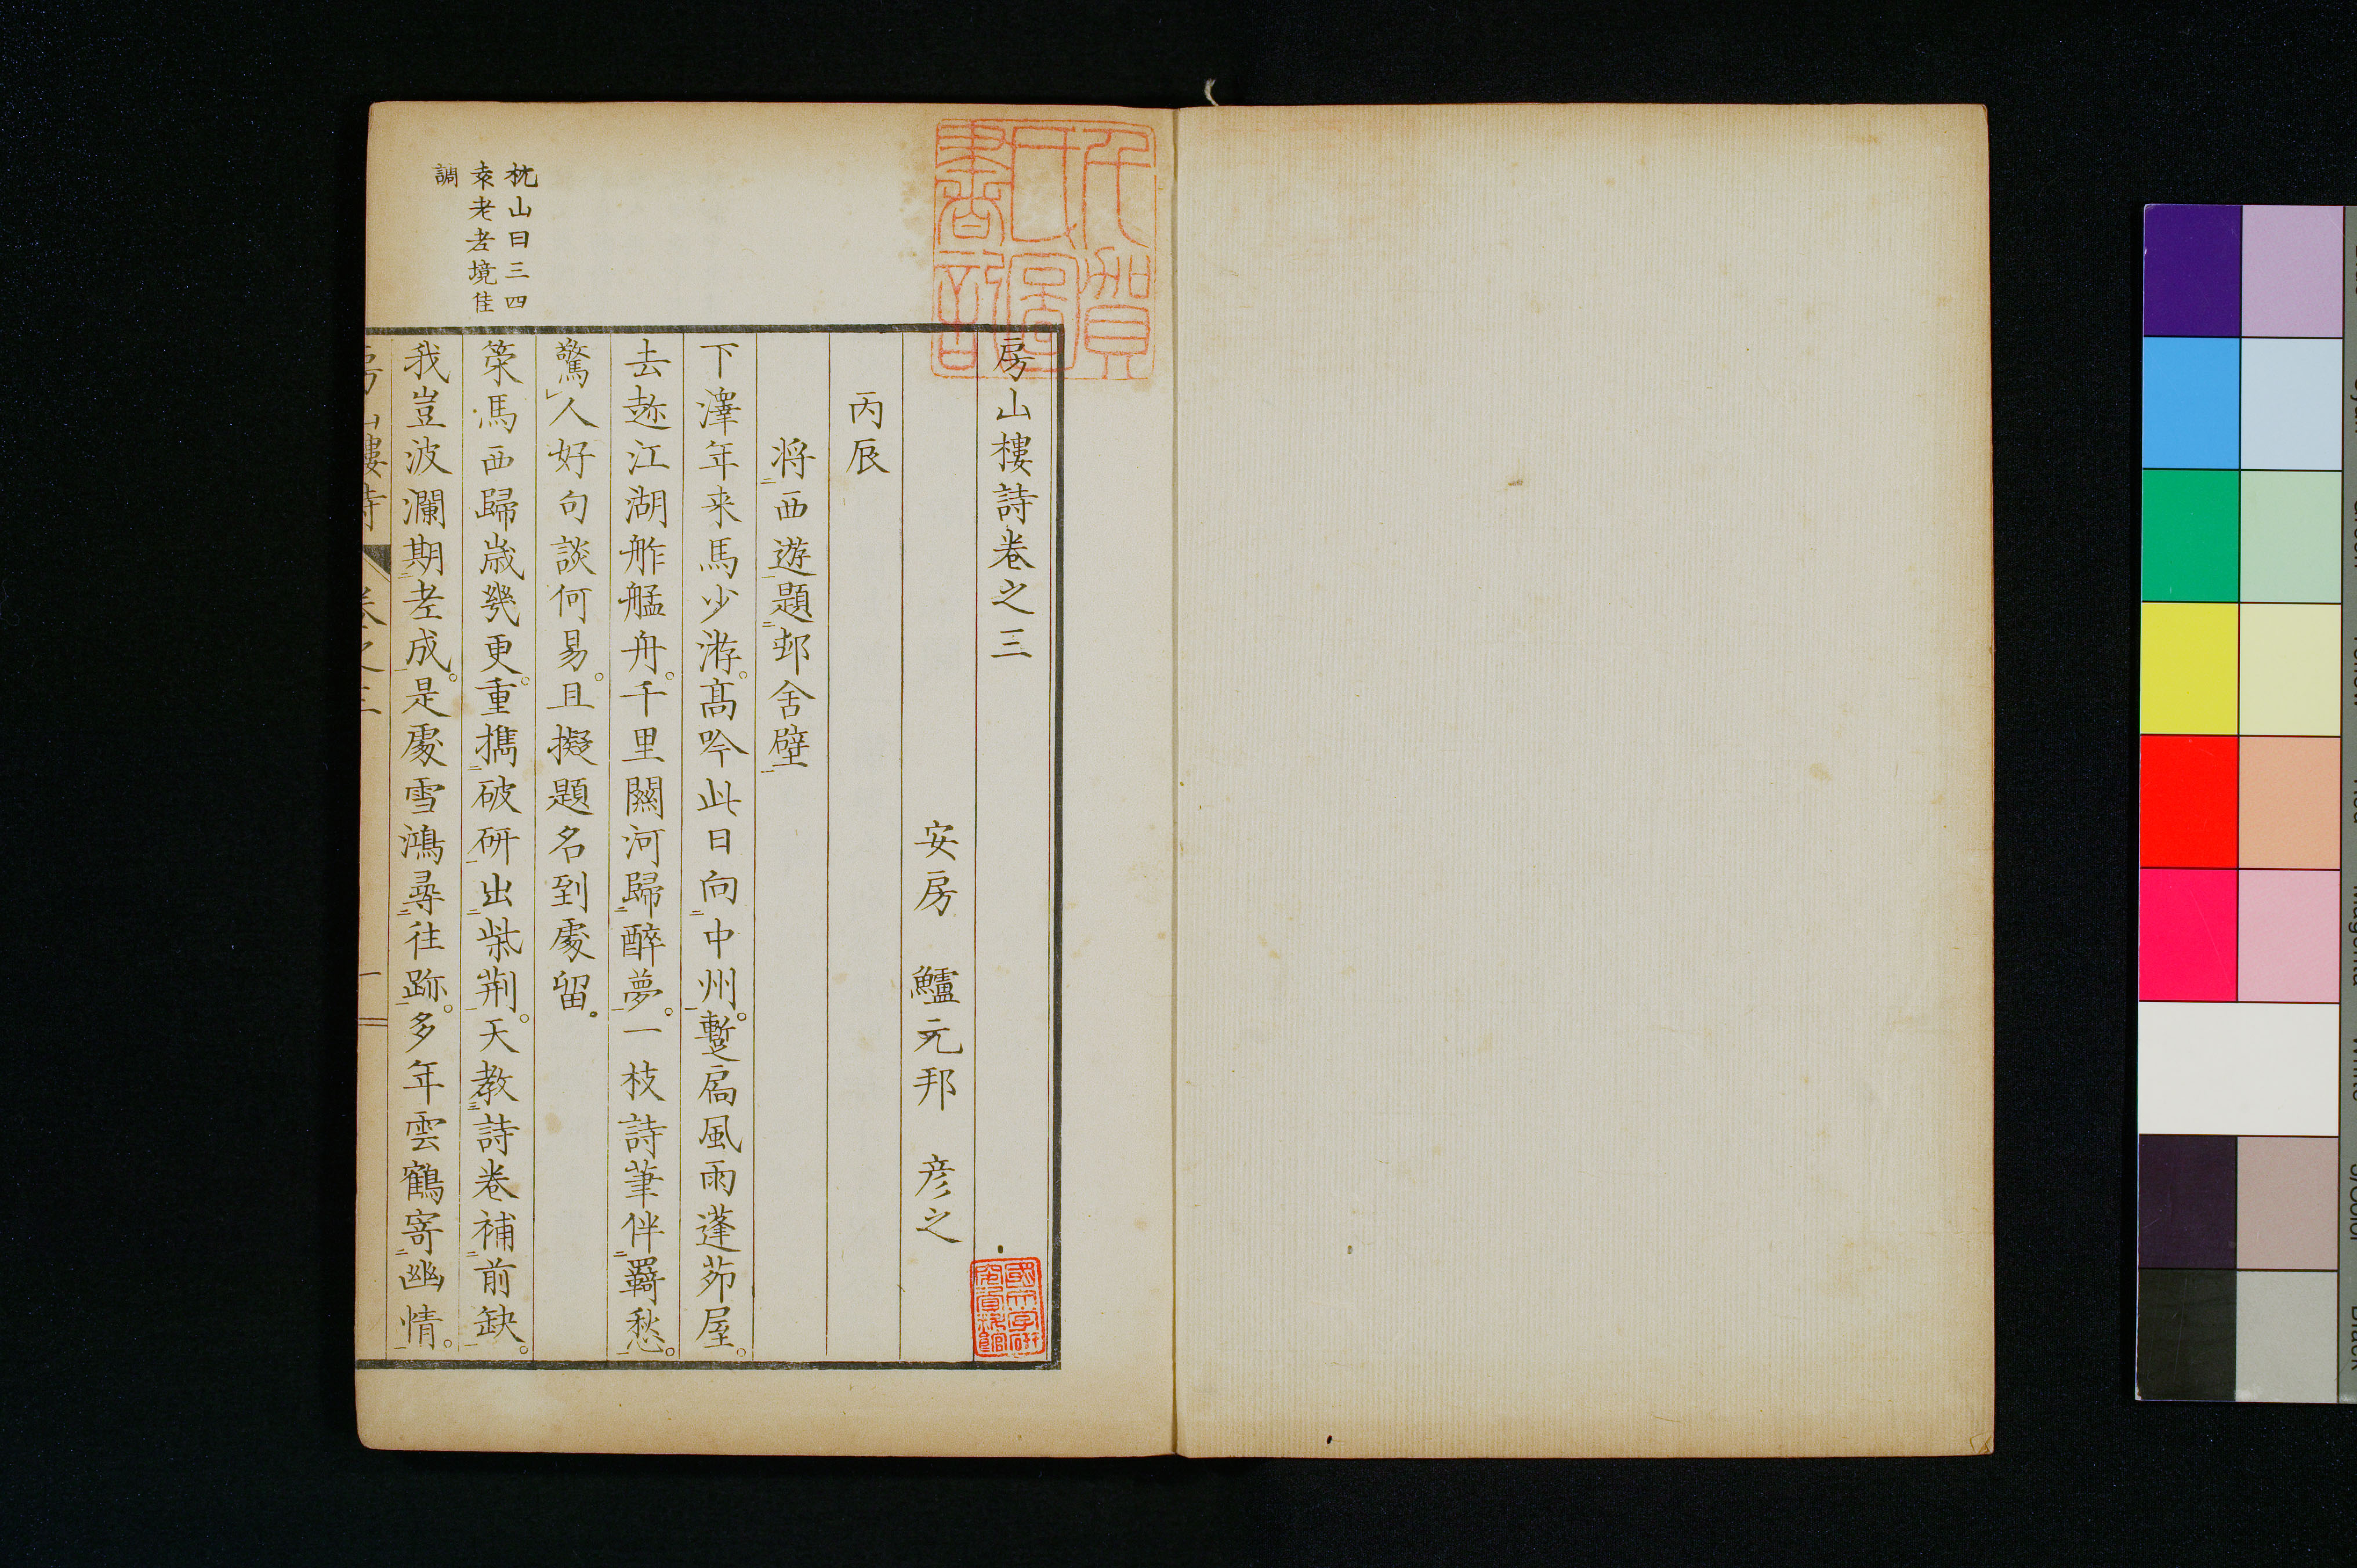 房山樓詩卷之三
安房 鱸元邦 彦之
丙辰
将西遊題邨舍壁
下澤年来馬少游。髙吟此日向中州。蹔扄風雨蓬茆屋。
去趂江湖舴艋舟。千里關河歸醉夢。一枝詩筆伴羇愁。
驚人好句談何易。且擬題名到處留。
策馬西歸嵗幾更。重擕破研出柴荆。天教詩卷補前缺。
我豈波瀾期老成。是處雪鴻尋往跡。多年雲鶴寄幽情。
枕山曰三四
袁老老境佳
調
房山樓詩 卷之三 一